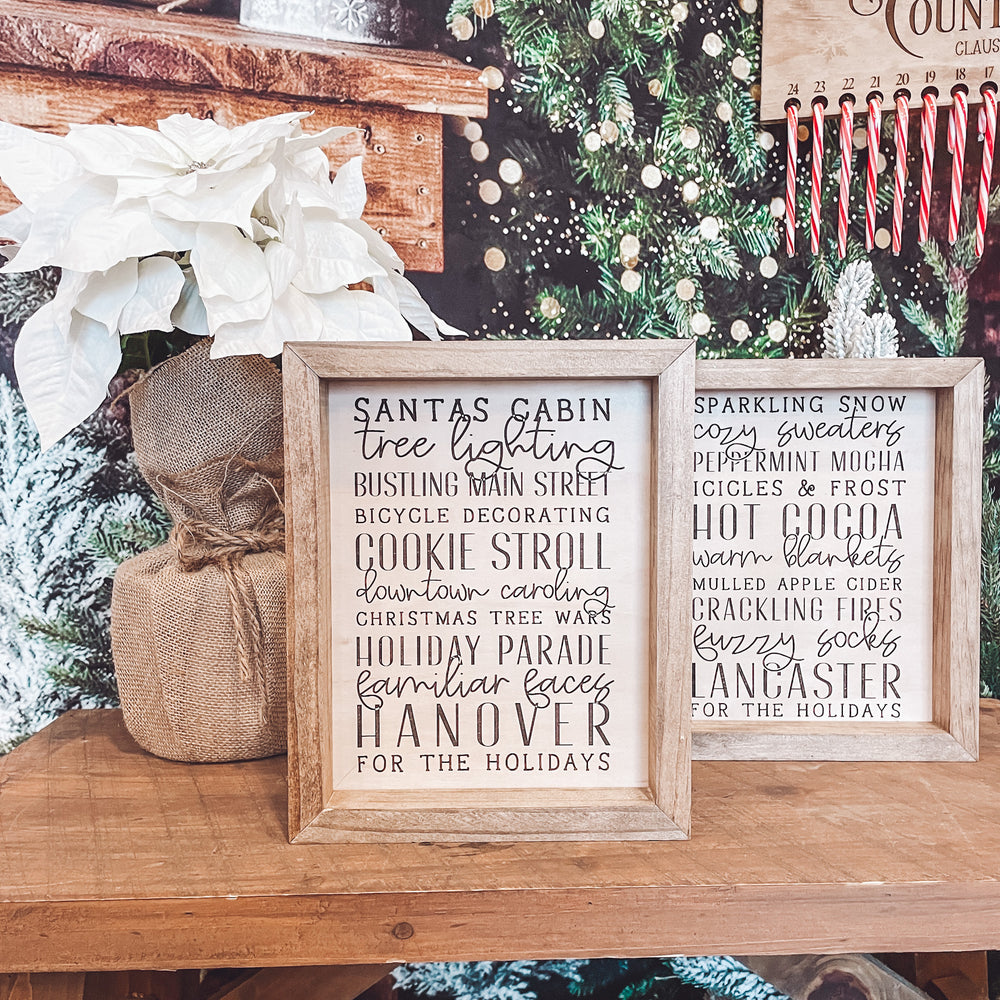 COUNT
CLAUS
24 23 22 21 20 19 18 17
SANTAS CABIN
tree lighting
BUSTLING MAIN STREET
BICYCLE DECORATING
COOKIE STROLL
downtown caroling
CHRISTMAS TREE WARS
HOLIDAY PARADE
familiar faces
HANOVER
FOR THE HOLIDAYS
SPARKLING SNOW
cozy sweaters
PEPPERMINT MOCHA
ICICLES & FROST
HOT COCOA
warm blankets
MULLED APPLE CIDER
CRACKLING FIRES
fuzzy socks
LANCASTER
FOR THE HOLIDAYS